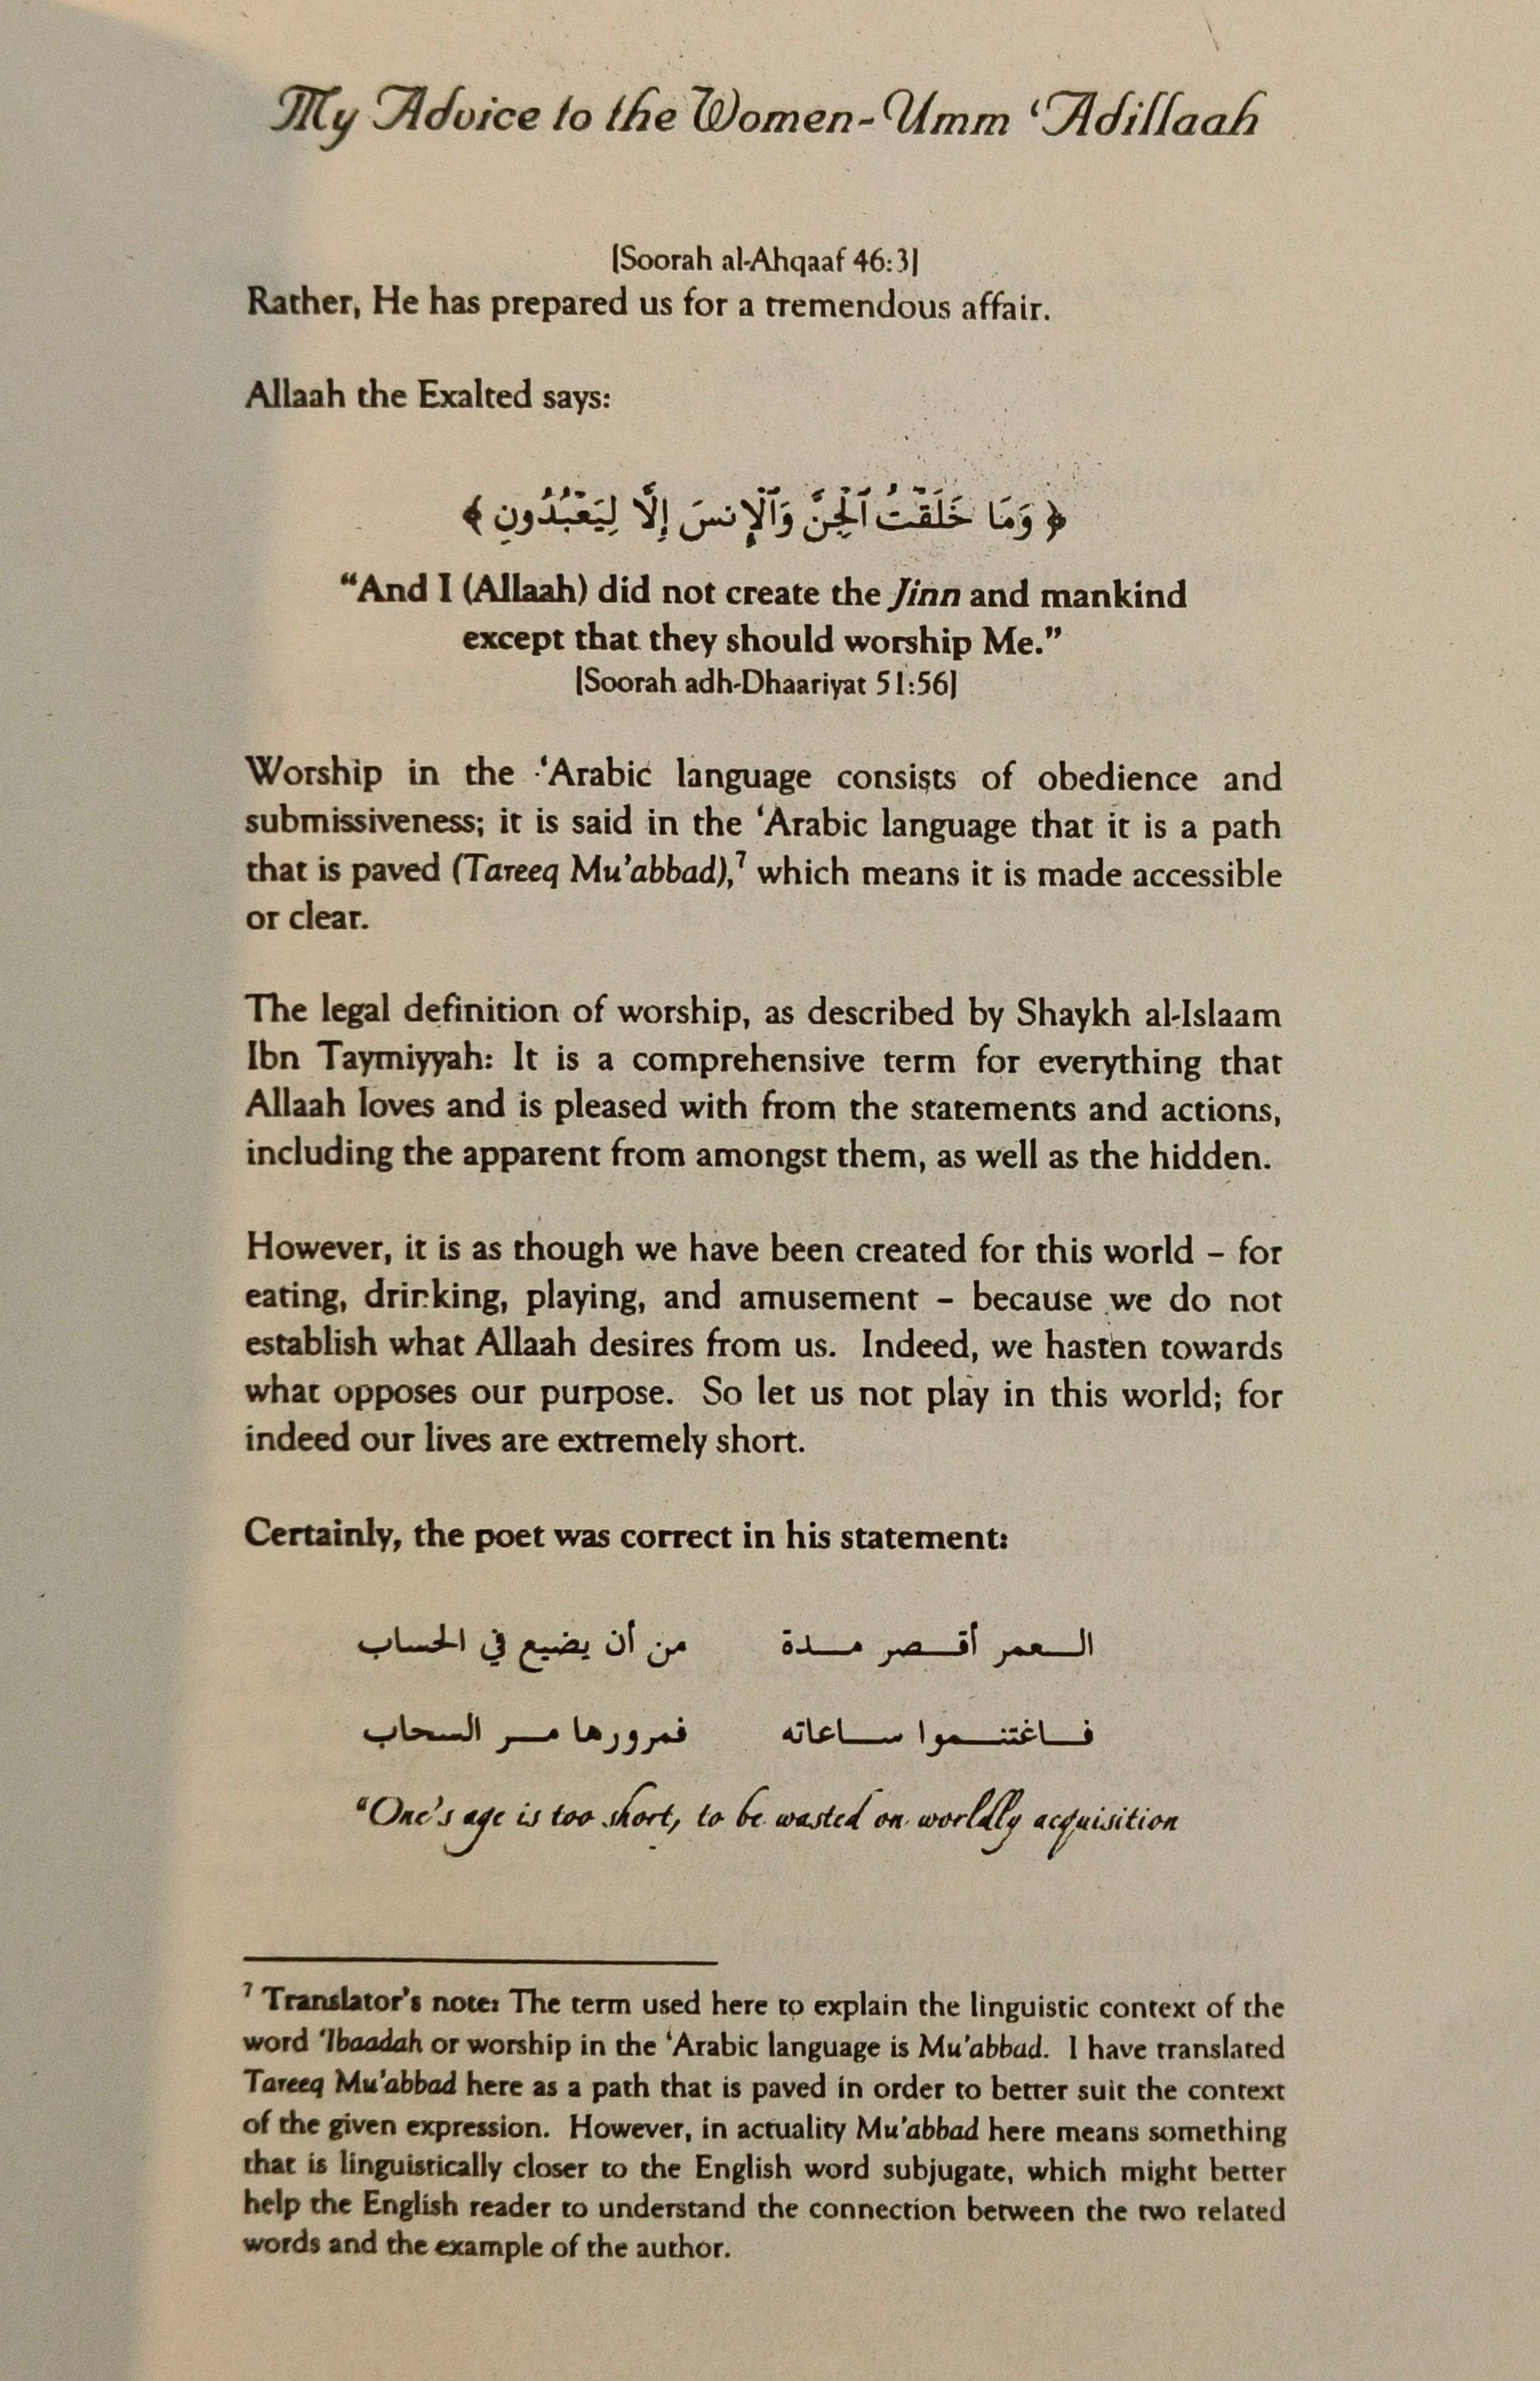 My Advice to the Women-Umm ‘Adillaah
[Soorah al-Ahqaaf 46:3]
Rather, He has prepared us for a tremendous affair.
Allaah the Exalted says:
﴿ وَمَا خَلَقْتُ ٱلْجِنَّ وَٱلْإِنسَ إِلَّا لِيَعْبُدُونِ ﴾
“And I (Allaah) did not create the Jinn and mankind
except that they should worship Me.”
[Soorah adh-Dhaariyat 51:56]
Worship in the ‘Arabic language consists of obedience and
submissiveness; it is said in the ‘Arabic language that it is a path
that is paved (Tareeq Mu’abbad),⁷ which means it is made accessible
or clear.
The legal definition of worship, as described by Shaykh al-Islaam
Ibn Taymiyyah: It is a comprehensive term for everything that
Allaah loves and is pleased with from the statements and actions,
including the apparent from amongst them, as well as the hidden.
However, it is as though we have been created for this world – for
eating, drinking, playing, and amusement – because we do not
establish what Allaah desires from us. Indeed, we hasten towards
what opposes our purpose. So let us not play in this world; for
indeed our lives are extremely short.
Certainly, the poet was correct in his statement:
الـعمر أقـصر مـدة من أن يضيع في الحساب
فـاغتنـموا سـاعاته فمرورها مـر السحاب
“One’s age is too short, to be wasted on worldly acquisition
⁷ Translator’s note: The term used here to explain the linguistic context of the
word ‘Ibaadah or worship in the ‘Arabic language is Mu’abbad. I have translated
Tareeq Mu’abbad here as a path that is paved in order to better suit the context
of the given expression. However, in actuality Mu’abbad here means something
that is linguistically closer to the English word subjugate, which might better
help the English reader to understand the connection between the two related
words and the example of the author.